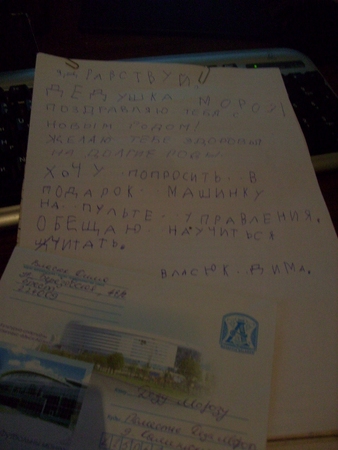 ЗДРАВСТВУЙ
ДЕДУШКА МОРОЗ!
ПОЗДРАВЛЯЮ ТЕБЯ С
НОВЫМ ГОДОМ!
ЖЕЛАЮ ТЕБЕ ЗДОРОВЬЯ
НА ДОЛГИЕ ГОДЫ
ХОЧУ ПОПРОСИТЬ В
ПОДАРОК МАШИНКУ
НА ПУЛЬТЕ УПРАВЛЕНИЯ.
ОБЕЩАЮ НАУЧИТЬСЯ
ЧИТАТЬ.
ВЛАСЮК ДИМА.
Деду Морозу